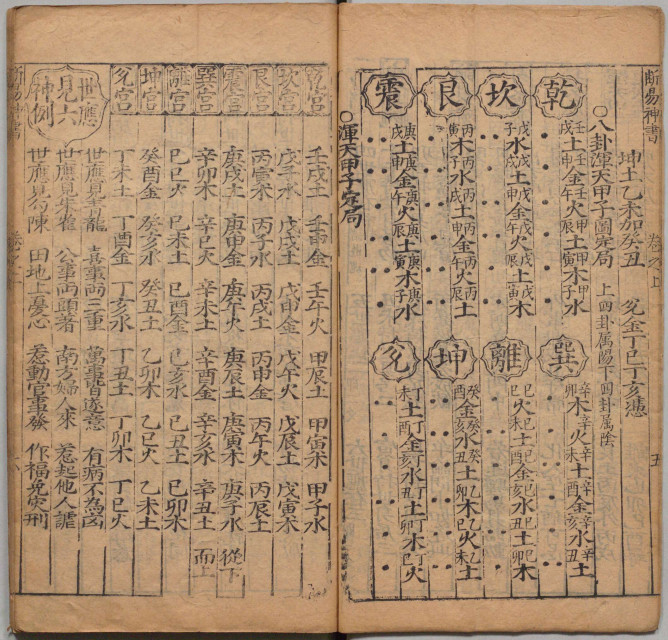 斷易神書 卷之上 五
坤土乙未加癸丑 兌金丁巳丁亥憑
○八卦渾天甲子圖定局 上四卦屬陽下四卦屬陰
乾 壬戌土壬申金壬午火甲辰土甲寅木甲子水
坎 戊子水戊戌土戊申金戊午火戊辰土戊寅木
艮 丙寅木丙子水丙戌土丙申金丙午火丙辰土
震 庚戌土庚申金庚午火庚辰土庚寅木庚子水
巽 辛卯木辛巳火辛未土辛酉金辛亥水辛丑土
離 己巳火己未土己酉金己亥水己丑土己卯木
坤 癸酉金癸亥水癸丑土乙卯木乙巳火乙未土
兌 丁未土丁酉金丁亥水丁丑土丁卯木丁巳火
○渾天甲子定局
乾宮 壬戌土 壬申金 壬午火 甲辰土 甲寅木 甲子水
坎宮 戊子水 戊戌土 戊申金 戊午火 戊辰土 戊寅木
艮宮 丙寅木 丙子水 丙戌土 丙申金 丙午火 丙辰土
震宮 庚戌土 庚申金 庚午火 庚辰土 庚寅木 庚子水 從下
巽宮 辛卯木 辛巳火 辛未土 辛酉金 辛亥水 辛丑土 而上
離宮 己巳火 己未土 己酉金 己亥水 己丑土 己卯木
坤宮 癸酉金 癸亥水 癸丑土 乙卯木 乙巳火 乙未土
兌宮 丁未土 丁酉金 丁亥水 丁丑土 丁卯木 丁巳火
世應見六神例
世應見青龍 喜事兩三重 萬事皆遂意 有病不為凶
世應見朱雀 公事兩頭著 南方婦人來 惹起他人謔
世應見勾陳 田地上憂心 惹動官事發 作福免災刑
斷易神書 卷之上